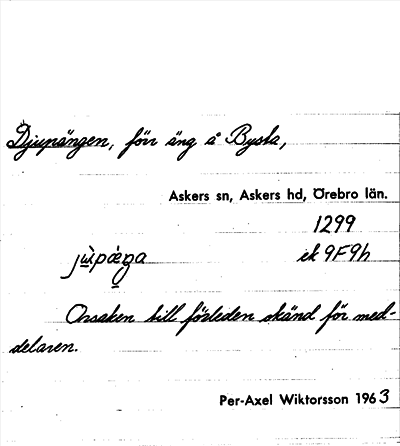 Djupängen, förr äng å Bysta,
Askers sn, Askers hd, Örebro län.
1299
jùpǽŋa ek 9F9h
Orsaken till förleden okänd för med-
delaren.
Per-Axel Wiktorsson 1963